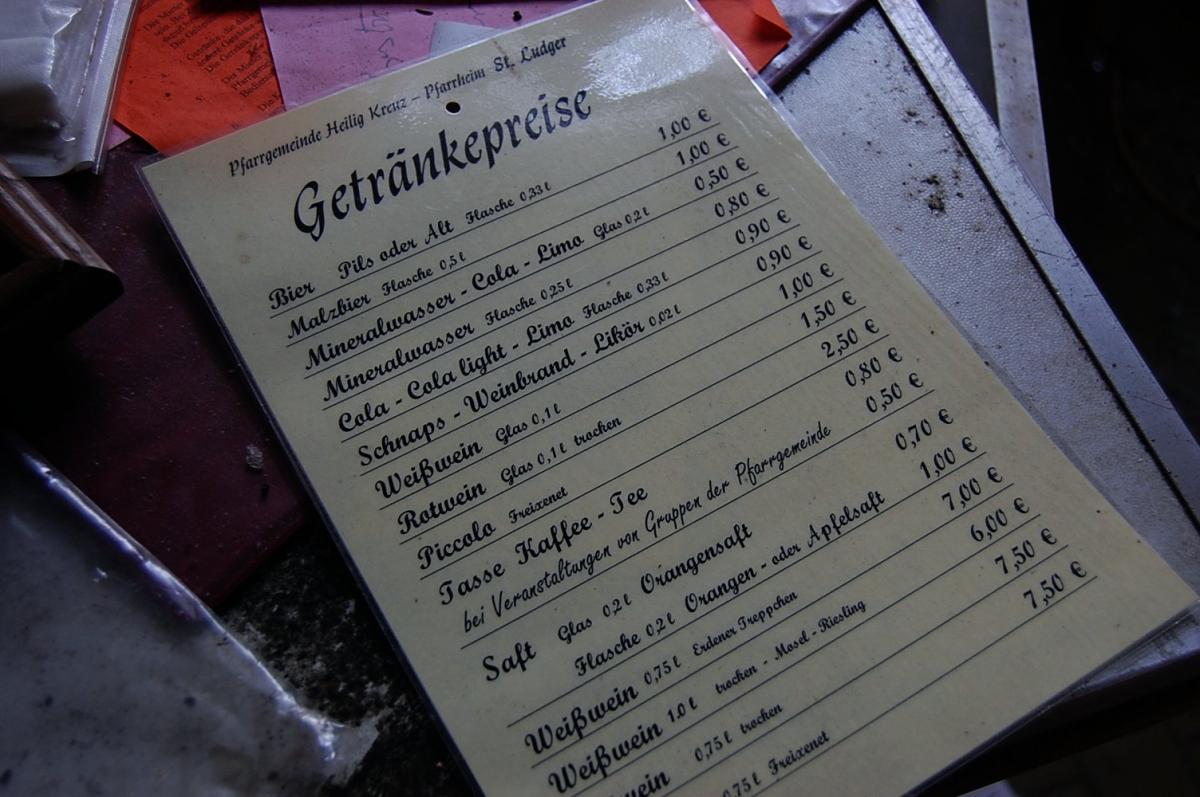 Pfarrgemeinde Heilig Kreuz - Pfarrheim St. Ludger
Getränkepreise
Bier Pils oder Alt Flasche 0,33 l 1,00 €
Malzbier Flasche 0,5 l 1,00 €
Mineralwasser - Cola - Limo Glas 0,2 l 0,50 €
Mineralwasser Flasche 0,25 l 0,80 €
Cola - Cola light - Limo Flasche 0,33 l 0,90 €
Schnaps - Weinbrand - Likör 0,02 l 0,90 €
Weißwein Glas 0,1 l 1,00 €
Rotwein Glas 0,1 l trocken 1,50 €
Piccolo Freixenet 2,50 €
Tasse Kaffee - Tee 0,80 €
bei Veranstaltungen von Gruppen der Pfarrgemeinde 0,50 €
Saft Glas 0,2 l Orangensaft 0,70 €
Flasche 0,2 l Orangen - oder Apfelsaft 1,00 €
Weißwein 0,75 l Erdener Treppchen 7,00 €
Weißwein 1,0 l trocken - Mosel - Riesling 6,00 €
wein 0,75 l trocken 7,50 €
0,75 l Freixenet 7,50 €